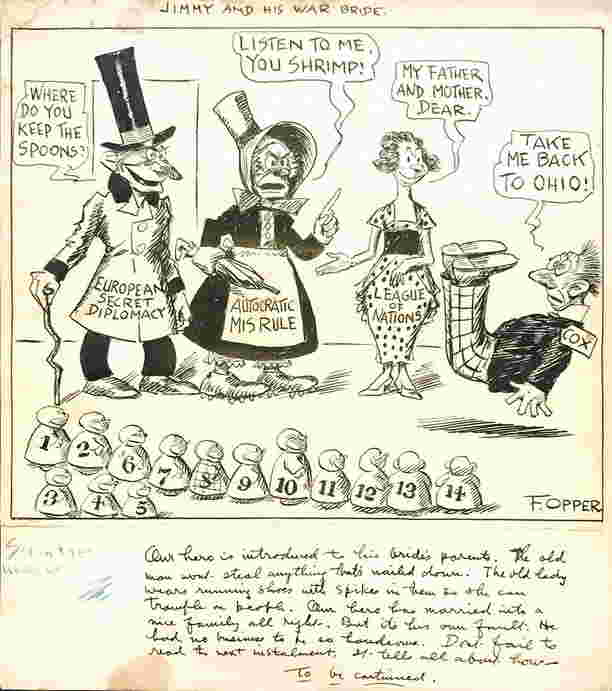 JIMMY AND HIS WAR BRIDE.
LISTEN TO ME,
YOU SHRIMP!
WHERE
DO YOU
KEEP THE
SPOONS?
MY FATHER
AND MOTHER,
DEAR.
TAKE
ME BACK
TO OHIO!
EUROPEAN
SECRET
DIPLOMACY
AUTOCRATIC
MISRULE
LEAGUE
OF
NATIONS
COX
1 2 6 7 8 9 10 11 12 13 14
3 4 5
F. OPPER
Our hero is introduced to his bride's parents. The old
man wont steal anything thats nailed down. The old lady
wears running shoes with spikes in them so she can
trample on people. Our hero has married into a
nice family all right. But its his own fault. He
had no business to be so handsome. Dont fail to
read the next instalment. It tells all about how—
To be continued.